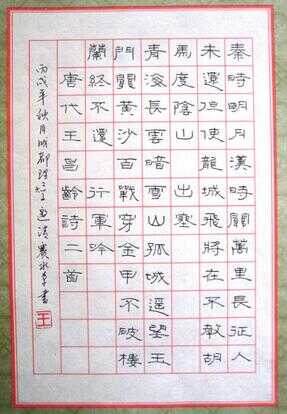 秦時明月漢時關萬里長征人
未還但使龍城飛將在不敎胡
馬度陰山　出塞
青海長雲暗雪山孤城遥望玉
門關黃沙百戰穿金甲不破樓
蘭終不還　行軍吟
唐代王昌齡詩二首
丙戌年秋月成都
王